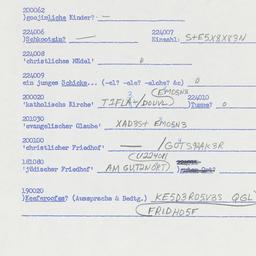 200062
)goajimliche Kinder? —
224006 224007
)Schkootzim? — Einzahl: S+E5X8X83N
224008
'christliches Mädel' 0
224009
ein junges Schicks... (-el? -ale? -alche? &c) 0
200020 (EMOSN3 224010
'katholische Kirche' T1FLA+/DOUVL) )Tume? 0
201030
'evangelischer Glaube' XAD3S+ EMOSN3
200100
'christlicher Friedhof' — /GUTSHAK3R
181080 (U22408)
'jüdischer Friedhof' AM GUTZNORT)
190020
)Keeferoofes? (Aussprache & Bedtg.) KE5D3R05V3S QGL
(FRIDHO5F